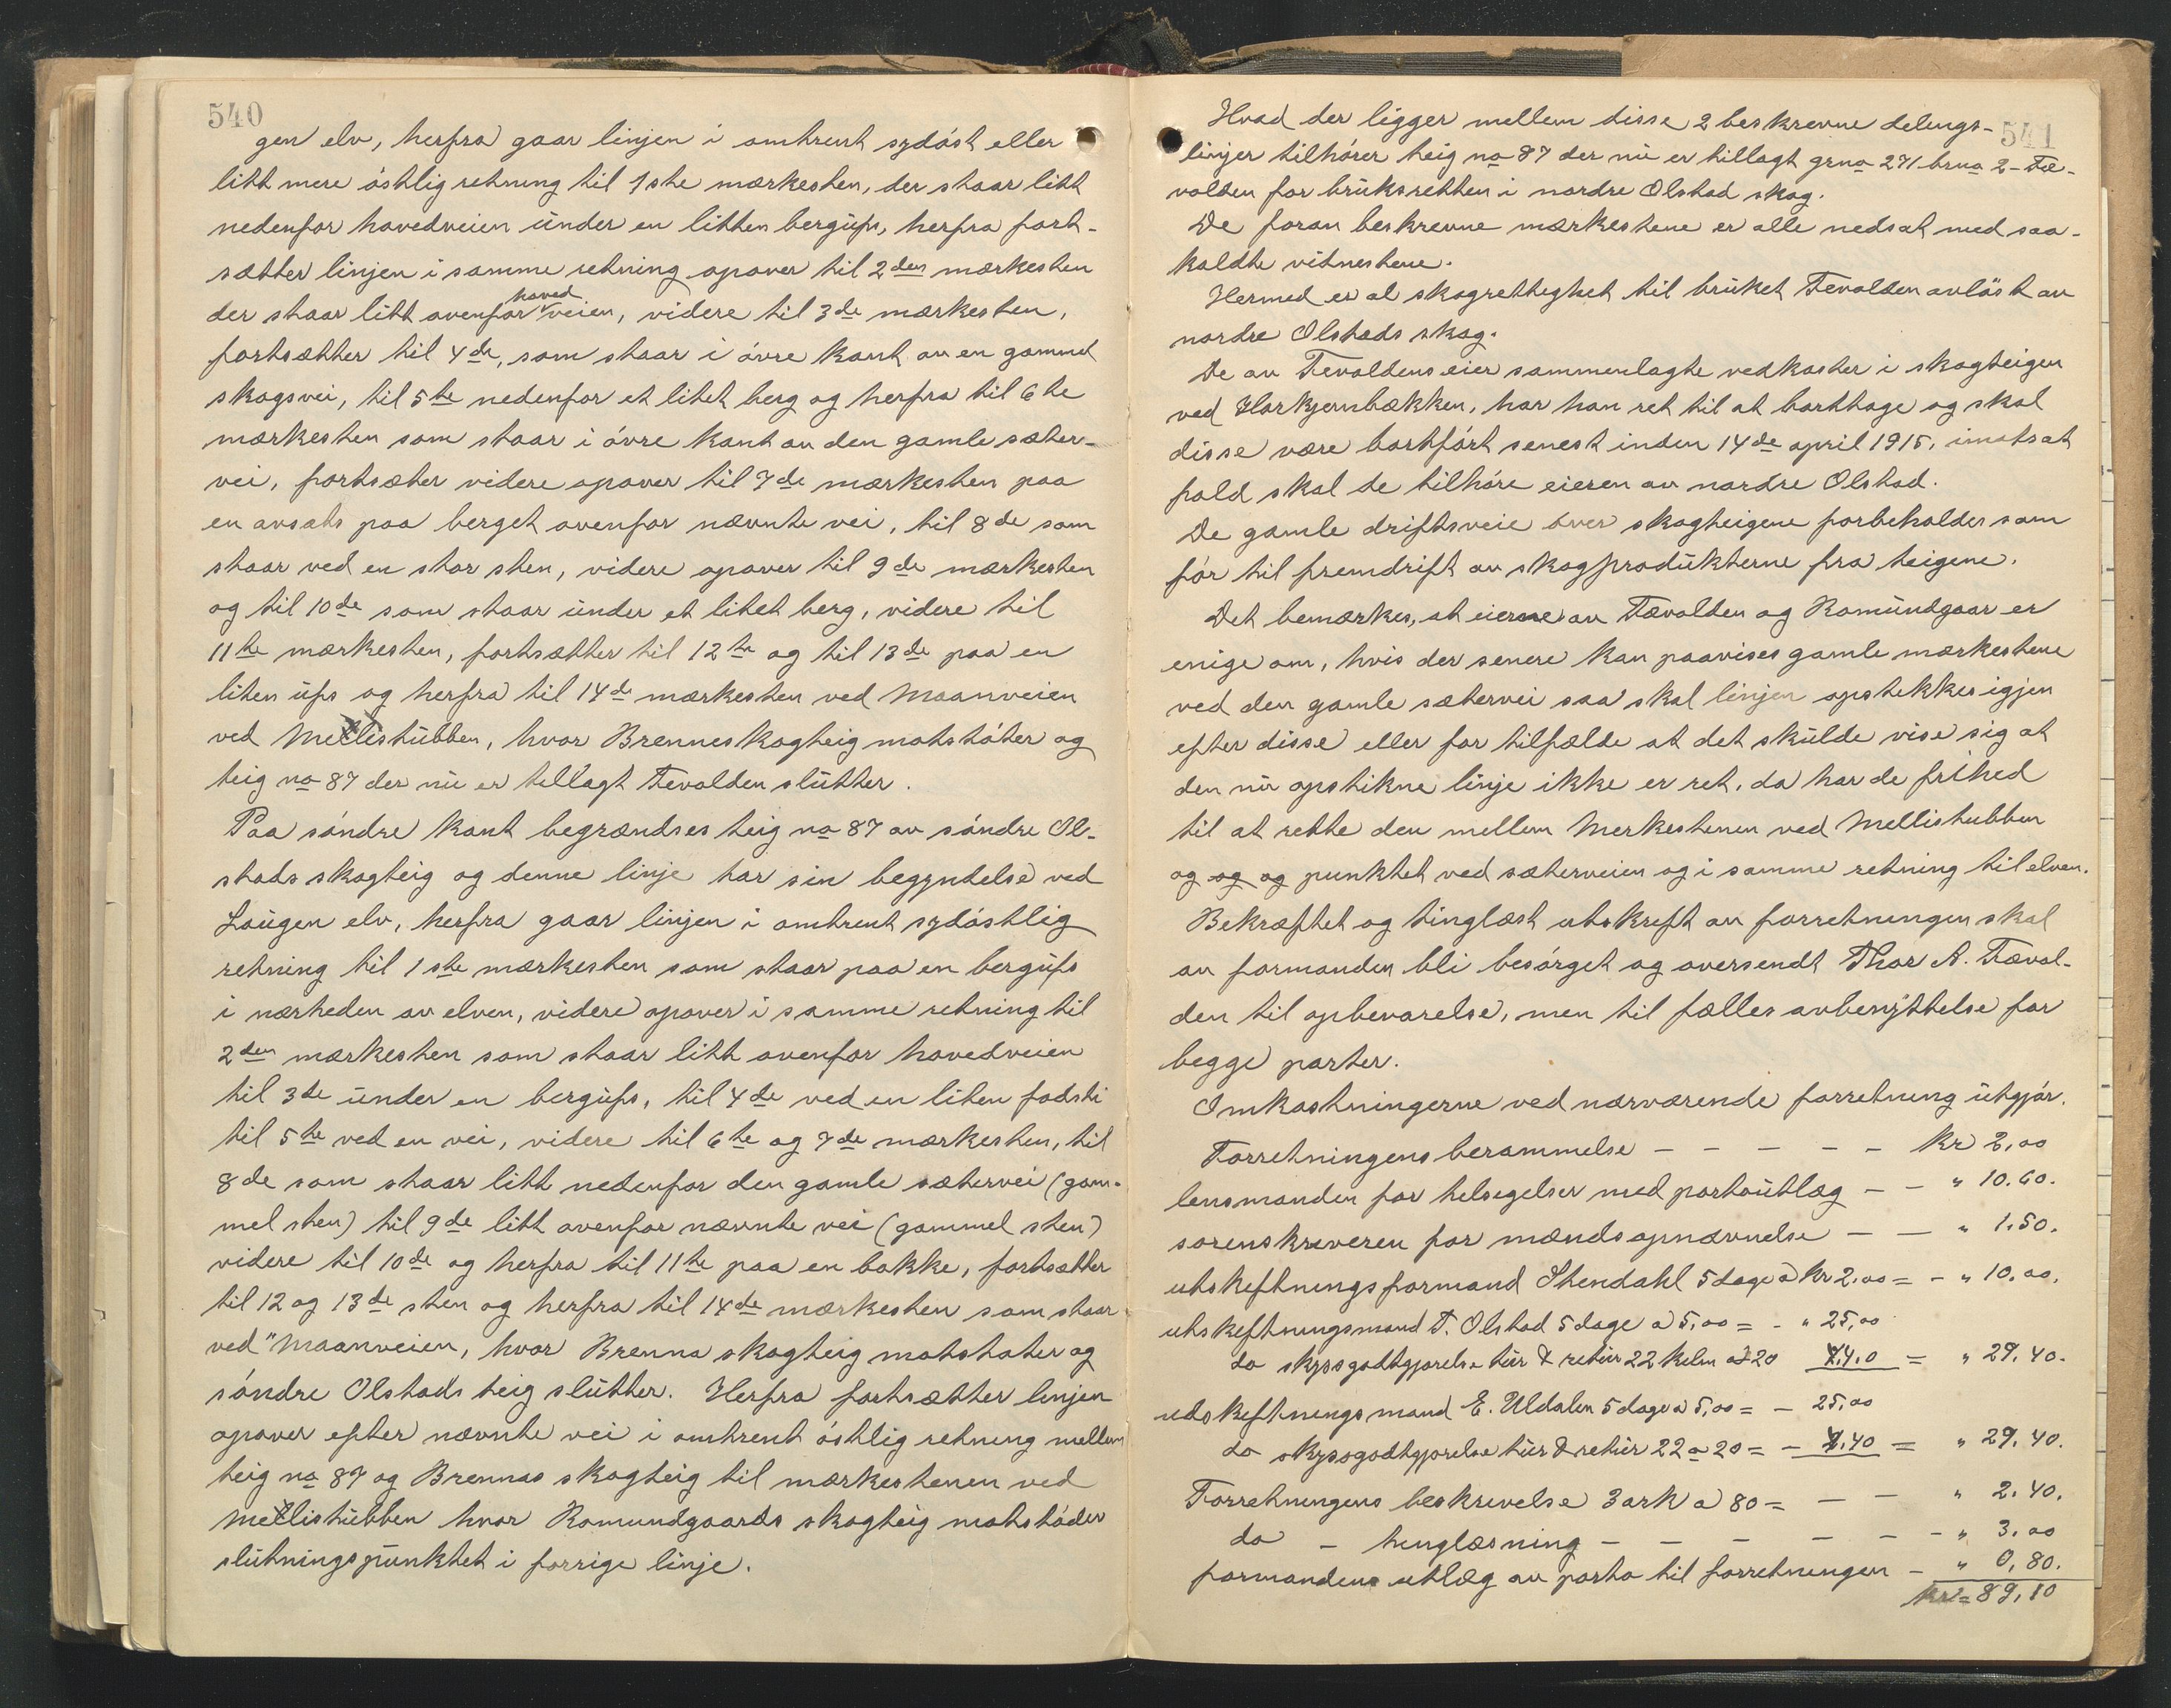 540
gen elv, herfra gaar linjen i omtrent sydöst eller
litt mere östlig retning til 1ste mærkesten, der staar litt
nedenfor hovedveien under en litten bergufs, herfra fort-
sætter linjen i samme retning opover til 2den mærkesten
der staar litt ovenfor hovedveien, videre til 3de mærkesten,
fortsætter til 4de, som staar i övre kant av en gammel
skogsvei, til 5te nedenfor et litet berg og herfra til 6te
mærkesten som staar i övre kant av den gamle sæter-
vei, fortsæter videre opover til 7de mærkesten paa
en avsats paa berget ovenfor nævnte vei, til 8de som
staar ved en stor sten, videre opover til 9de mærkesten
og til 10de som staar under et litet berg, videre til
11te mærkesten, fortsætter til 12te og til 13de paa en
liten ufs og herfra til 14de mærkesten ved Maanveien
ved Mellistubben, hvor Brenneskogteig motstöter og
teig no 87 der nu er tillagt Fevolden slutter.
Paa söndre kant begrændses teig no 87 av söndre Ol-
stads skogteig og denne linje har sin begyndelse ved
Lougen elv, herfra gaar linjen i omtrent sydöstlig
retning til 1ste mærkesten som staar paa en bergufs
i nærheden av elven, videre opover i samme retning til
2den mærkesten som staar litt ovenfor hovedveien
til 3de under en bergufs, til 4de ved en liten fodsti
til 5te ved en vei, videre til 6te og 7de mærkesten, til
8de som staar litt nedenfor den gamle sætervei (gam-
mel sten) til 9de litt ovenfor nævnte vei (gammel sten)
videre til 10de og herfra til 11te paa en bakke, fortsætter
til 12 og 13de sten og herfra til 14de mærkesten som staar
ved "Maanveien, hvor Brenna skogteig motstater og
söndre Olstads teig slutter. Herfra fortsætter linjen
opover efter nævnte vei i omtrent östlig retning mellem
teig no 87 og Brennas skogteig til mærkestenen ved
Mellistubben hvor Romundgaards skogteig motstöder
slutningspunktet i forrige linje.
541
Hvad der ligger mellem disse 2 beskrevne delings-
linjer tilhörer teig no 87 der nu er tillagt grno 271 brno 2 - Fæ-
volden for bruksretten i nordre Olstad skog.
De foran beskrevne mærkestene er alle nedsat med saa-
kaldte vitnestene.
Hermed er al skogrettighet til bruket Fevolden avlöst av
nordre Olstads skog.
De av Fevoldens eier sammenlagte vedkaster i skogteigen
ved Horkjernbækken, har han ret til at borttage og skal
disse være bortfört senest inden 14de april 1915, imotsat
fald skal de tilhöre eieren av nordre Olstad.
De gamle driftsveie over skogteigene forbeholdes som
för til fremdrift av skogprodukterne fra teigene.
Det bemærkes, at eierne av Fævolden og Romundgaar er
enige om, hvis der senere kan paavises gamle mærkestene
ved den gamle sætervei saa skal linjen opstikkes igjen
efter disse eller for tilfælde at det skulde vise sig at
den nu opstikne linje ikke er ret, da har de frihed
til at rette den mellem Merkestenen ved Mellistubben
og og og punktet ved sæterveien og i samme retning til elven.
Bekræftet og tinglæst utskrift av forretningen skal
av formanden bli besörget og oversendt Thor A. Fævol-
den til opbevarelse, men til fælles avbenyttelse for
begge parter.
Omkostningerne ved nærværende forretning utgjör.
Forretningens berammelse - - - - - Kr 2,00
lensmanden for helsegelser med portoutlæg - - " 10.60.
sorenskriveren for mændsopnævnelse - - " 1.50.
utskiftningsformand Stendahl 5 dage a Kr 2.00 = - " 10.00.
utskiftningsmand T. Olstad 5 dage a 5,00 = - " 25,00
do skysgodtgjorelse tur & retur 22 kilm a 20 4.40 = " 29.40.
udskiftningsmand E. Uldalen 5 dage a 5,00 = - 25,00
do skysgodtgjorelse tur & retur 22 a 20 = - 4.40 = " 29.40.
Forretningens beskrivelse 3 ark a 80 = - - " 2.40.
do - tinglæsning - - - - - - " 3.00
formandens utlæg av porto til forretningen - " 0,80.
Kr = 89,10